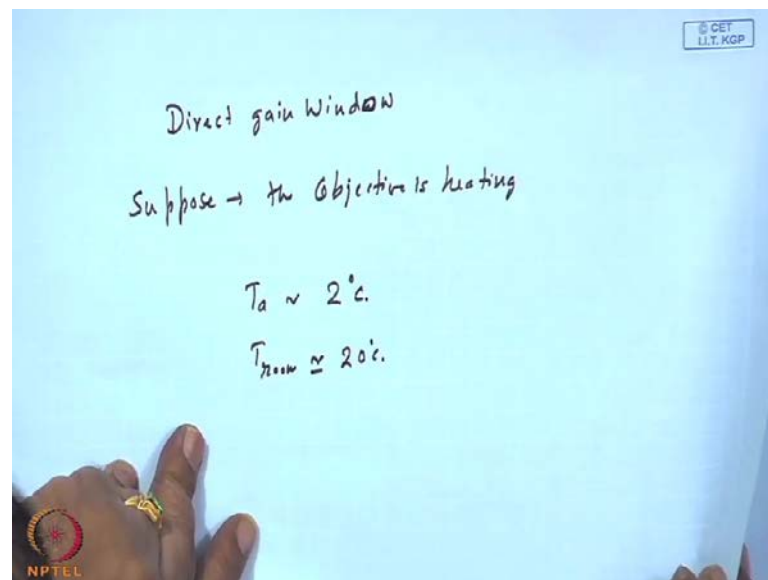 © CET
I.I.T. KGP
Direct gain Window
Suppose → the Objective is heating
Ta ~ 2°C.
Troom ≃ 20°C.
NPTEL